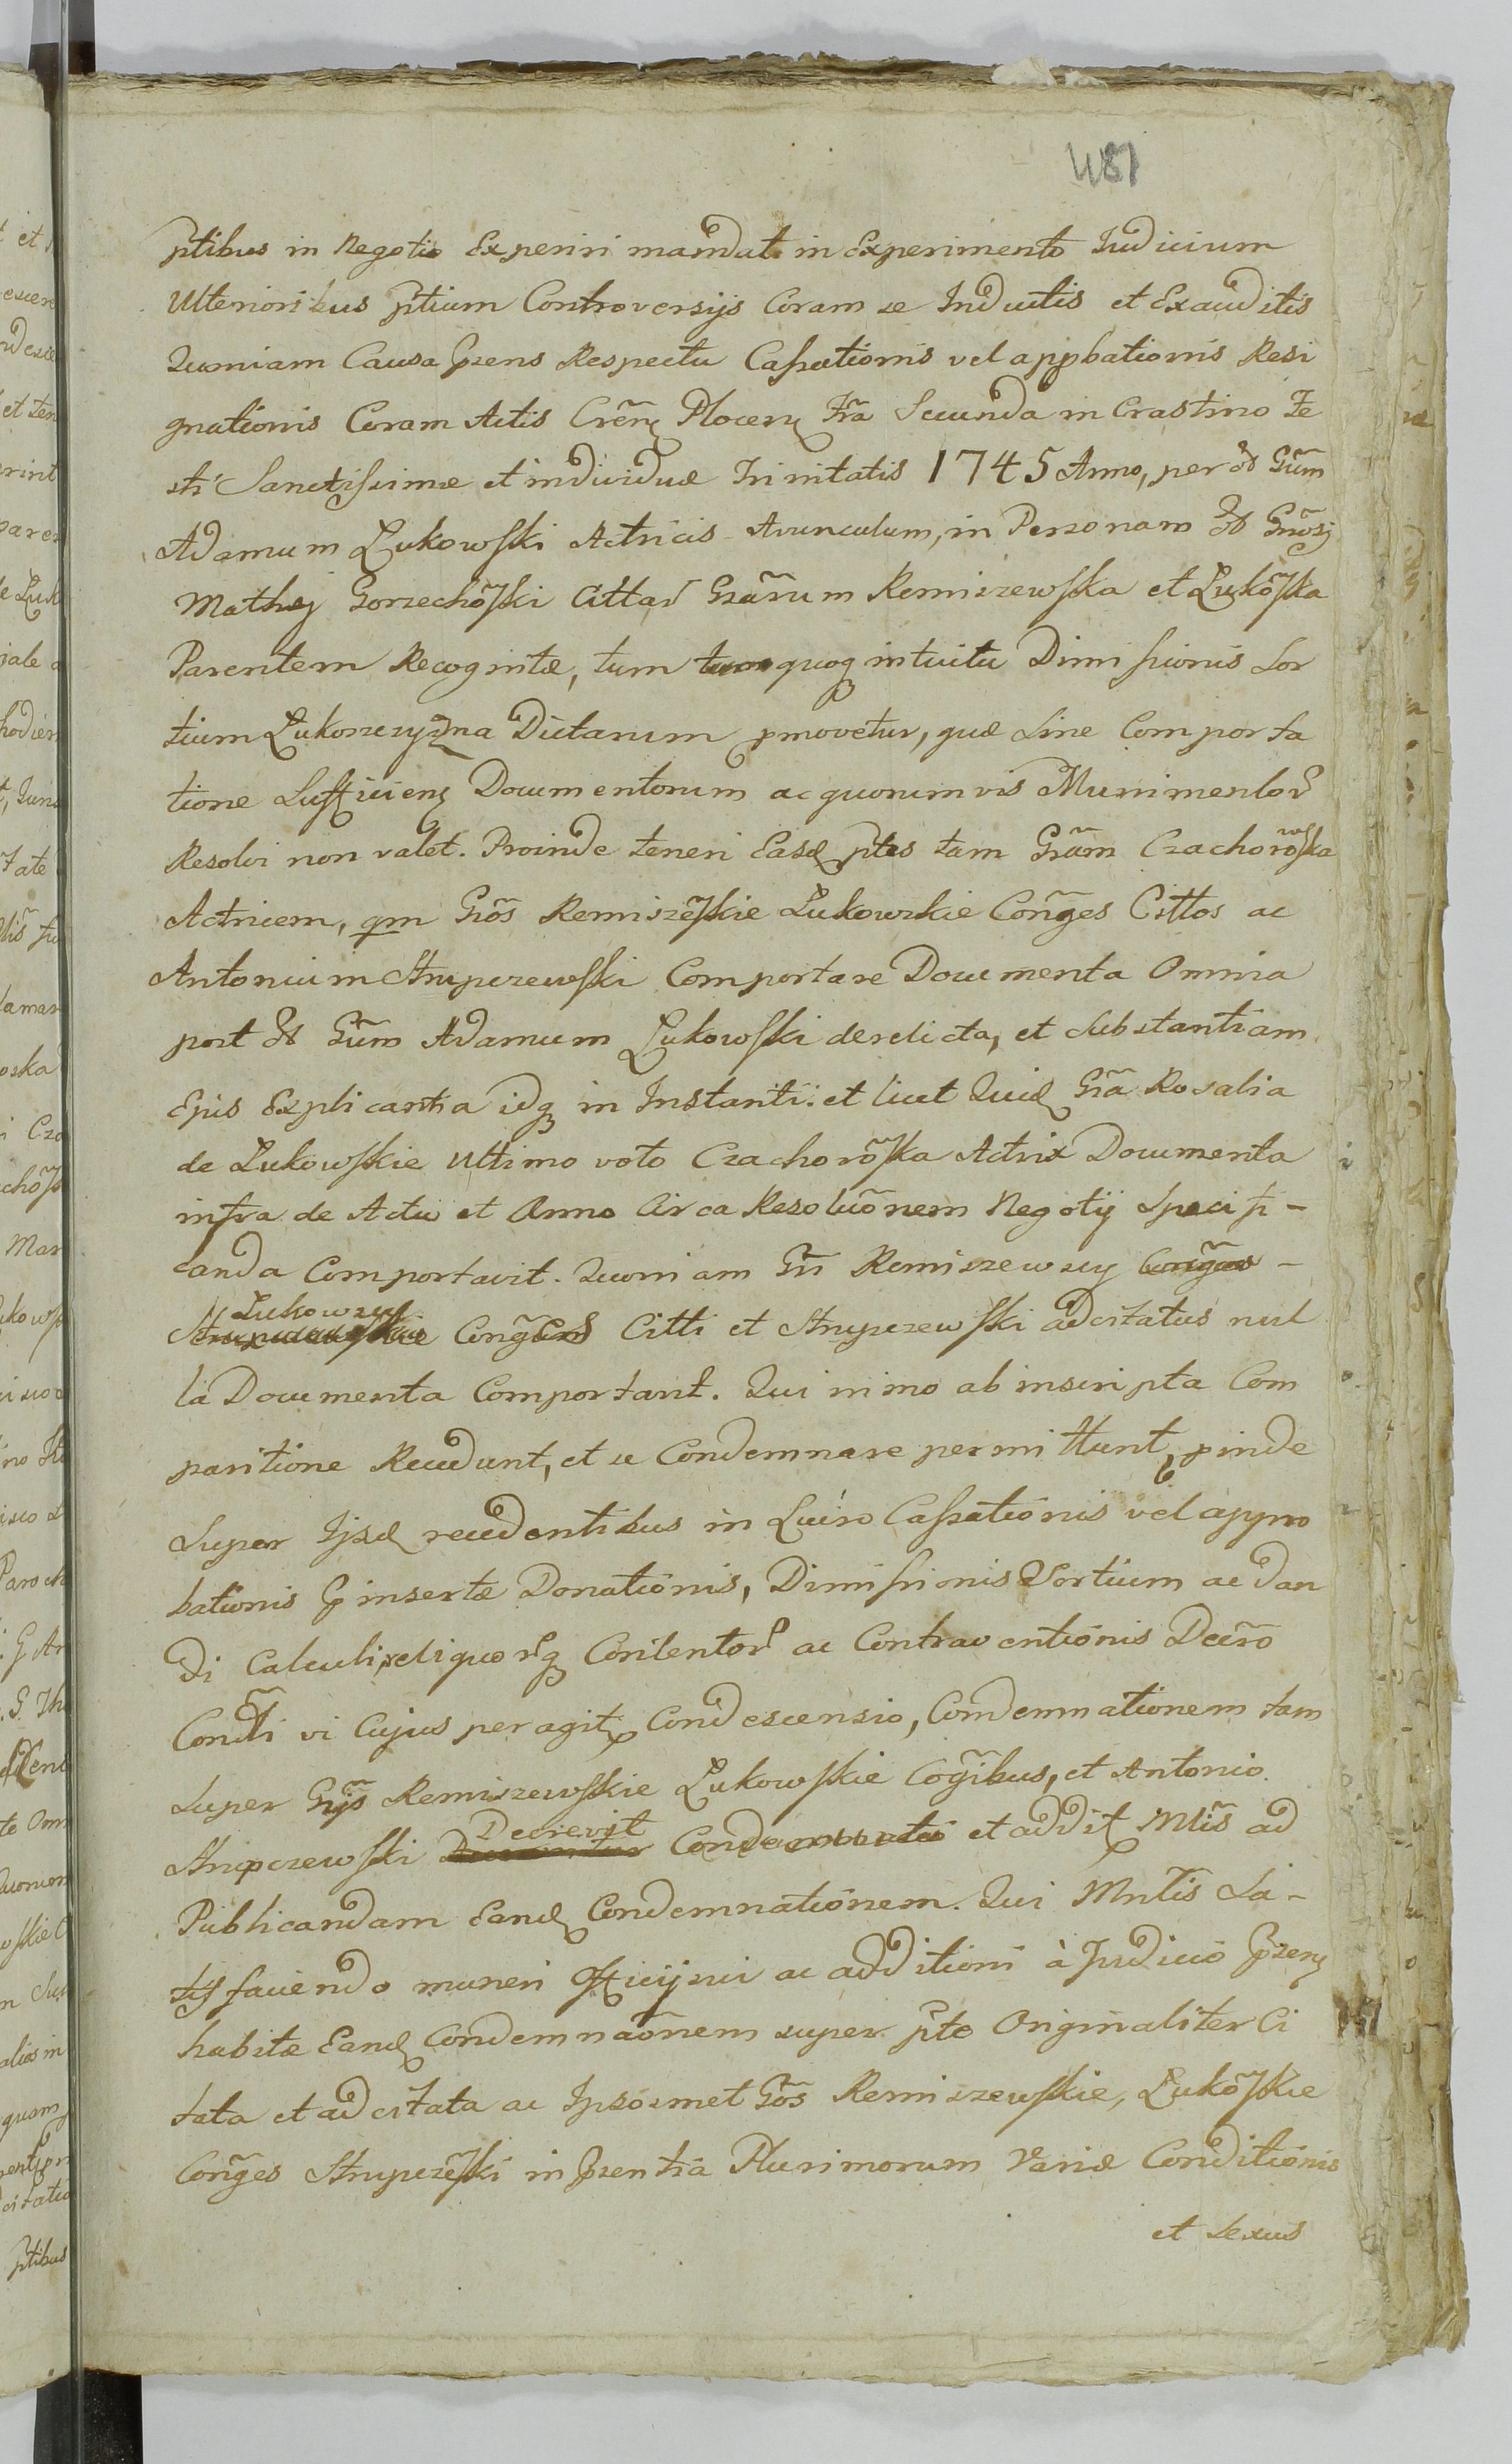 481
ptibus in Negotio Experiri mandat in Experimento Judicium
Ulterioribus ptium Controversijs Coram se Inductis et Exauditis
Quoniam Causa pzens Respectu Cassationis vel appbationis Resi
gnationis Coram Actis Cren Plocen Fra Secunda in Crastino Fe
sti Sanctissimæ et individuæ Trinitatis 1745 Anno, per Gum
Adamum Łukowski Actricis Avunculum, in Personam
Mathej Gorzechõski Citta Gzãrum Remiszewska et Łukõska
Parentem Recognitæ, tum quoq intuitu Dimissionis Sor
tium Łukoszczyzna Dictarum pmovetur, quæ Sine Comporta
tione Sufficien Documentorum ac quorumvis Munimento
Resolvi non valet. Proinde teneri Easd ptes tam Gzãm Czachorowska
Actricem, qm Gõs Remiszẽskie Łukowskie Conges Cittos ac
Antonium Strupczewski Comportare Documenta Omnia
post Gum Adamum Łukowski derelicta, et Substantiam
Ejus Explicantia idq in Instanti. et licet Quid Gia Rosalia
de Łukowskie Ultimo voto Czachorõska Actrix Documenta
infra de Actu et Anno Circa Resoluõnem Negotij Specifi -
canda Comportavit. Quoniam Gii Remiszewscy -
Łukowscy Citti et Strupczewski adcitatus nul
la Documenta Comportant. Qui nimo ab inscripta Com
paritione Recedunt, et se Condemnare permittunt, pinde
Super Ijsd recedentibus in Lucro Cassationis vel appro
bationis p insertæ Donationis, Dimissionis Sortium ac dan
di Calculi, reliquo q Contento ac Contraventionis Decro
Condti vi Cujus peragit Condescensio, Condemnationem tam
Super Gijs Remiszewskie Łukowskie Cogibus, et Antonio
Strupczewski Decrevit et addit Mtis ad
Publicandam Eand Condemnationem. Qui Mntis Sa -
tisfaciendo muneri Officij sui ac additioni à Judicio pzen
habitæ Eand Condemnaõnem super pte Originaliter Ci
tata et adcitata ac Ipsosmet Gõs Remiszewskie, Łukõskie
Conges Strupczẽski in pzentia Plurimorum Variæ Conditionis
et Sexus